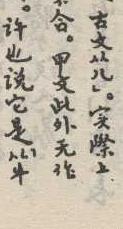 古文从儿」。实際上
合。甲文此外无作
。许也说它是以牛